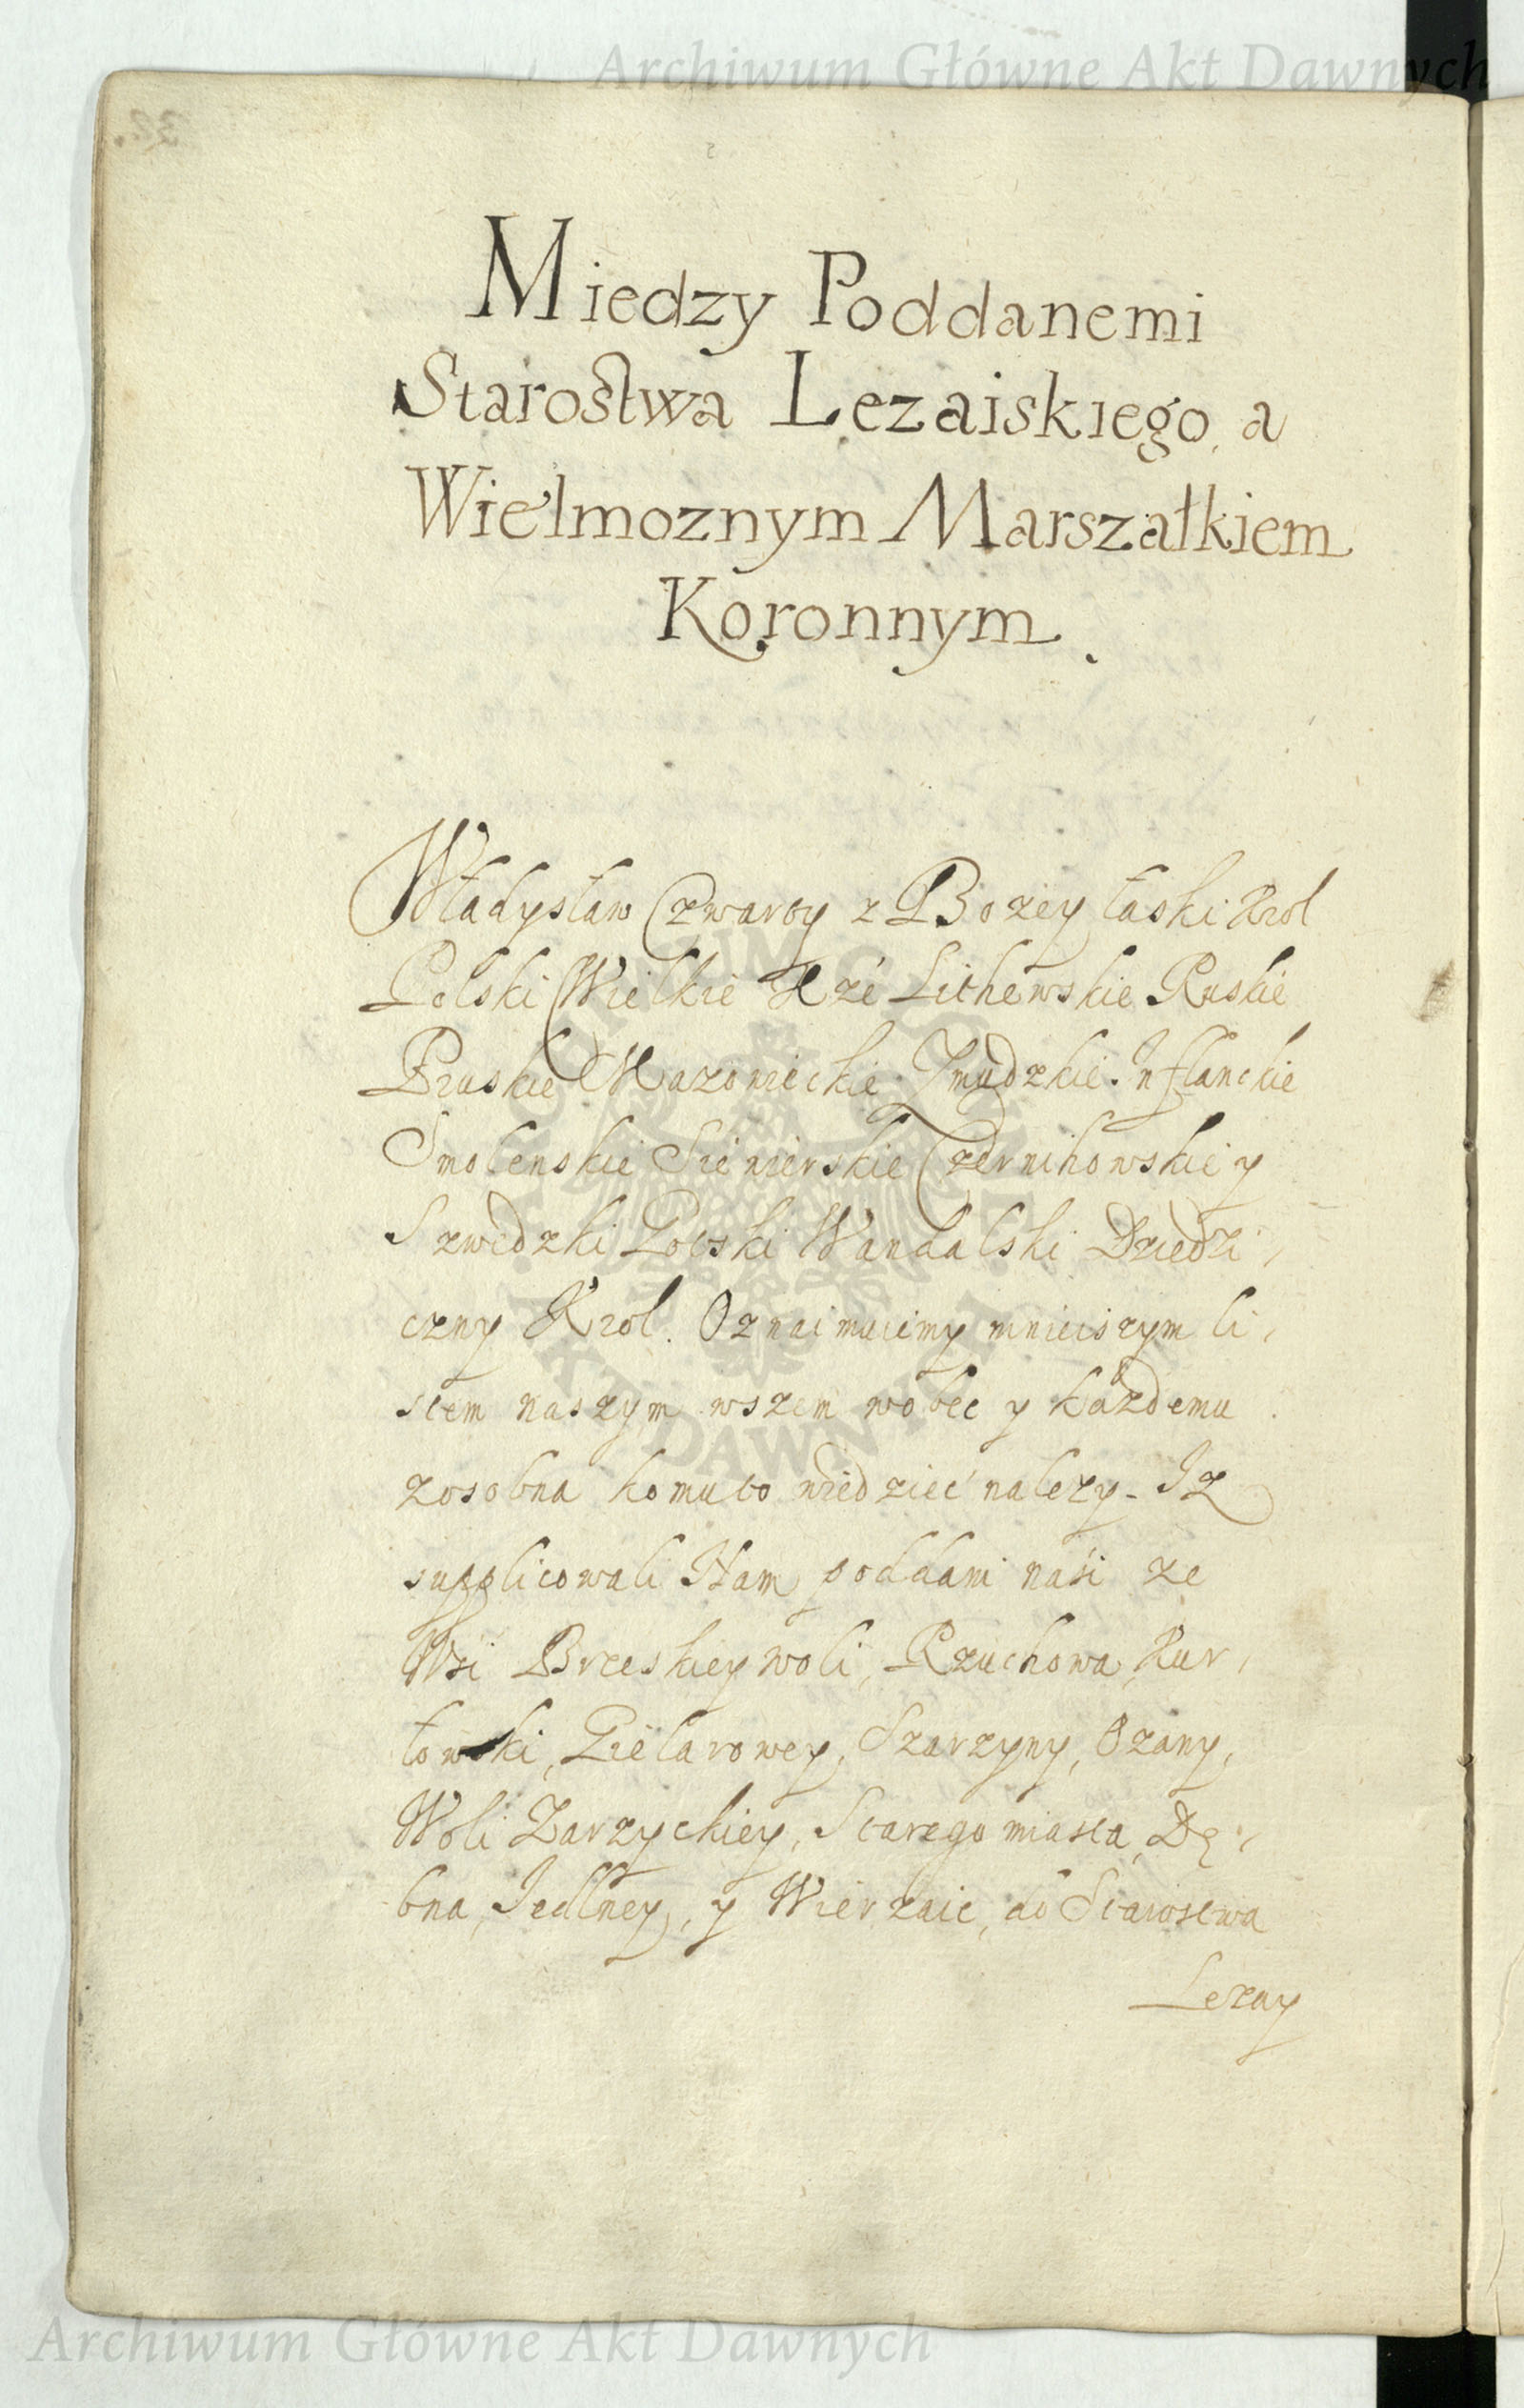 Archiwum Główne Akt Dawnych
32.
Miedzy Poddanemi
Starostwa Lezaiskiego, a
Wielmoznym Marszałkiem
Koronnym.
Władysław Czwarty z Bozey łaski Krol
Polski Wielkie Xże Lithewskie Ruskie
Pruskie Mazowieckie Zmudzkie Inflanckie
Smolenskie Siewierskie Czernihowskie y
Szwedzki Gotski Wandalski Dziedzi,
czny Krol. Oznaimuiemy mnieiszym li,
stem naszym wszem wobec y każdemu
zosobna komu to wiedzieć nalezy. Iz
supplicowali Nam poddani naśi ze
Wsi Brzeskiey woli, Rzuchowa, Kur,
łowski, Gielarowey, Szarzyny, Ozany,
Woli Zarzyckiey, Starego miasta, Dę,
bna, Jedlney, y Wierzaic, do Starostwa
Lezay
ARCHIWUM GŁÓWNE AKT DAWNYCH
Archiwum Główne Akt Dawnych